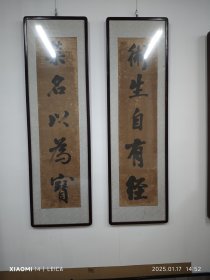 衛生自有經
榮名以為寶
XIAOMI 14 | LEICA
2025.01.17 14:52